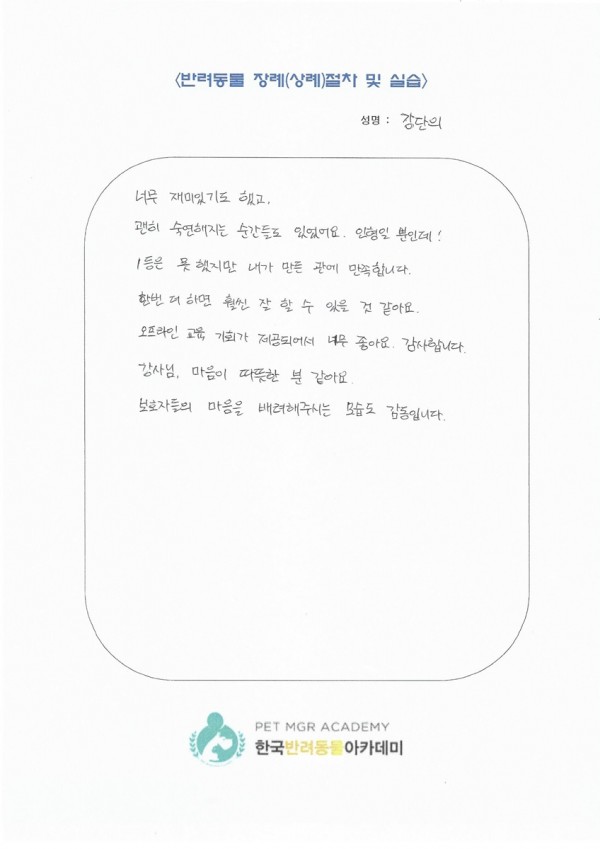 <반려동물 장례(상례)절차 및 실습>
성명 : 강단의
너무 재미있기도 했고,
괜히 숙연해지는 순간들도 있었어요. 인형일 뿐인데!
1등은 못했지만 내가 만든 관에 만족합니다.
한번 더 하면 훨씬 잘 할 수 있을 것 같아요.
오프라인 교육 기회가 제공되어서 너무 좋아요. 감사합니다.
강사님, 마음이 따뜻한 분 같아요.
보호자들의 마음을 배려해주시는 모습도 감동입니다.
PET MGR ACADEMY
한국반려동물아카데미